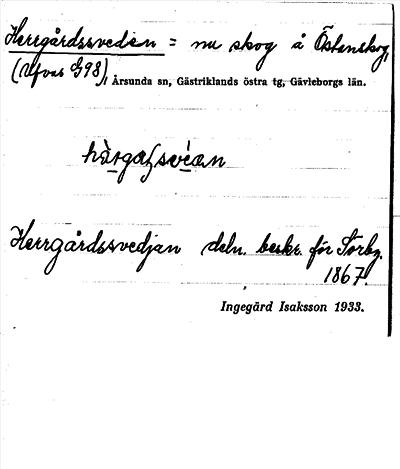 Herrgårdssveden = nu skog å Östanskog,
(Ulfvas G98), Årsunda sn, Gästriklands östra tg, Gävleborgs län.
Herrgårdssvedjan deln. beskr. för Torby.
1867.
Ingegärd Isaksson 1933.